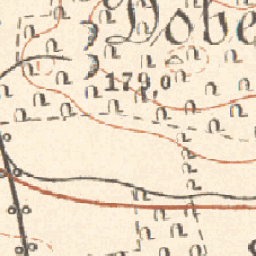 Dobe
179,0